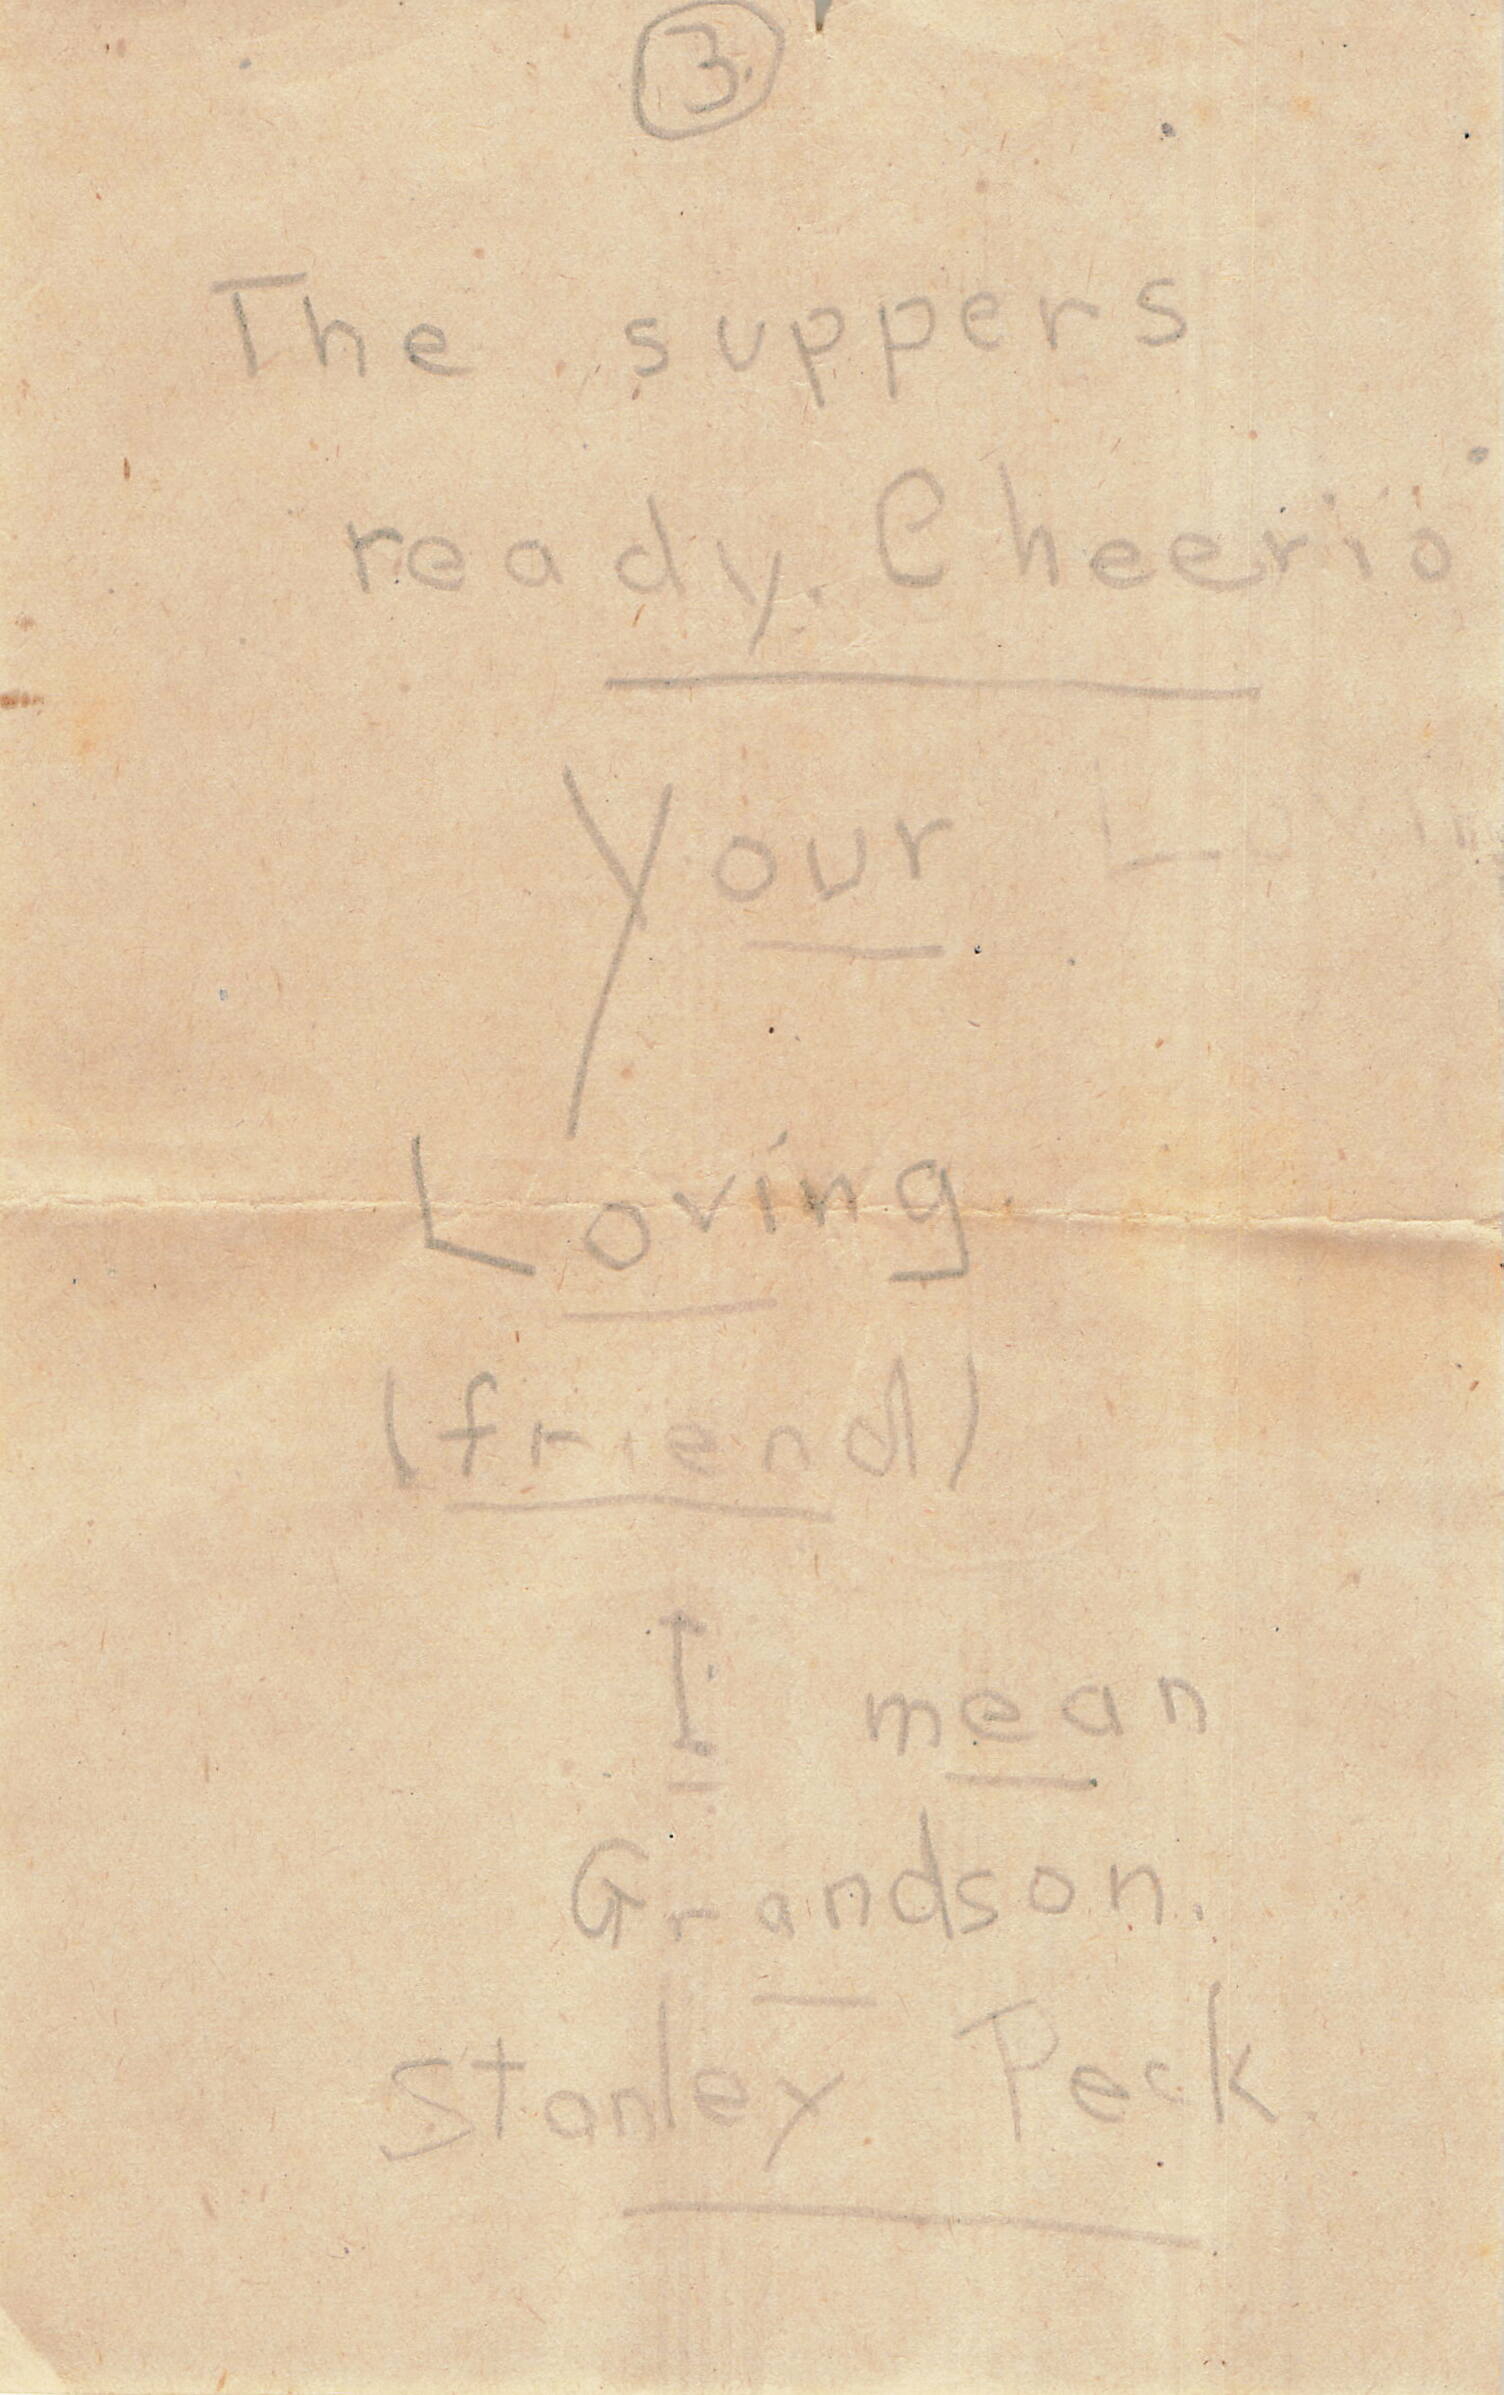 3.
The suppers
ready. Cheerio
Your Loving
Loving
(friend)
I mean
Grandson.
Stanley Peck